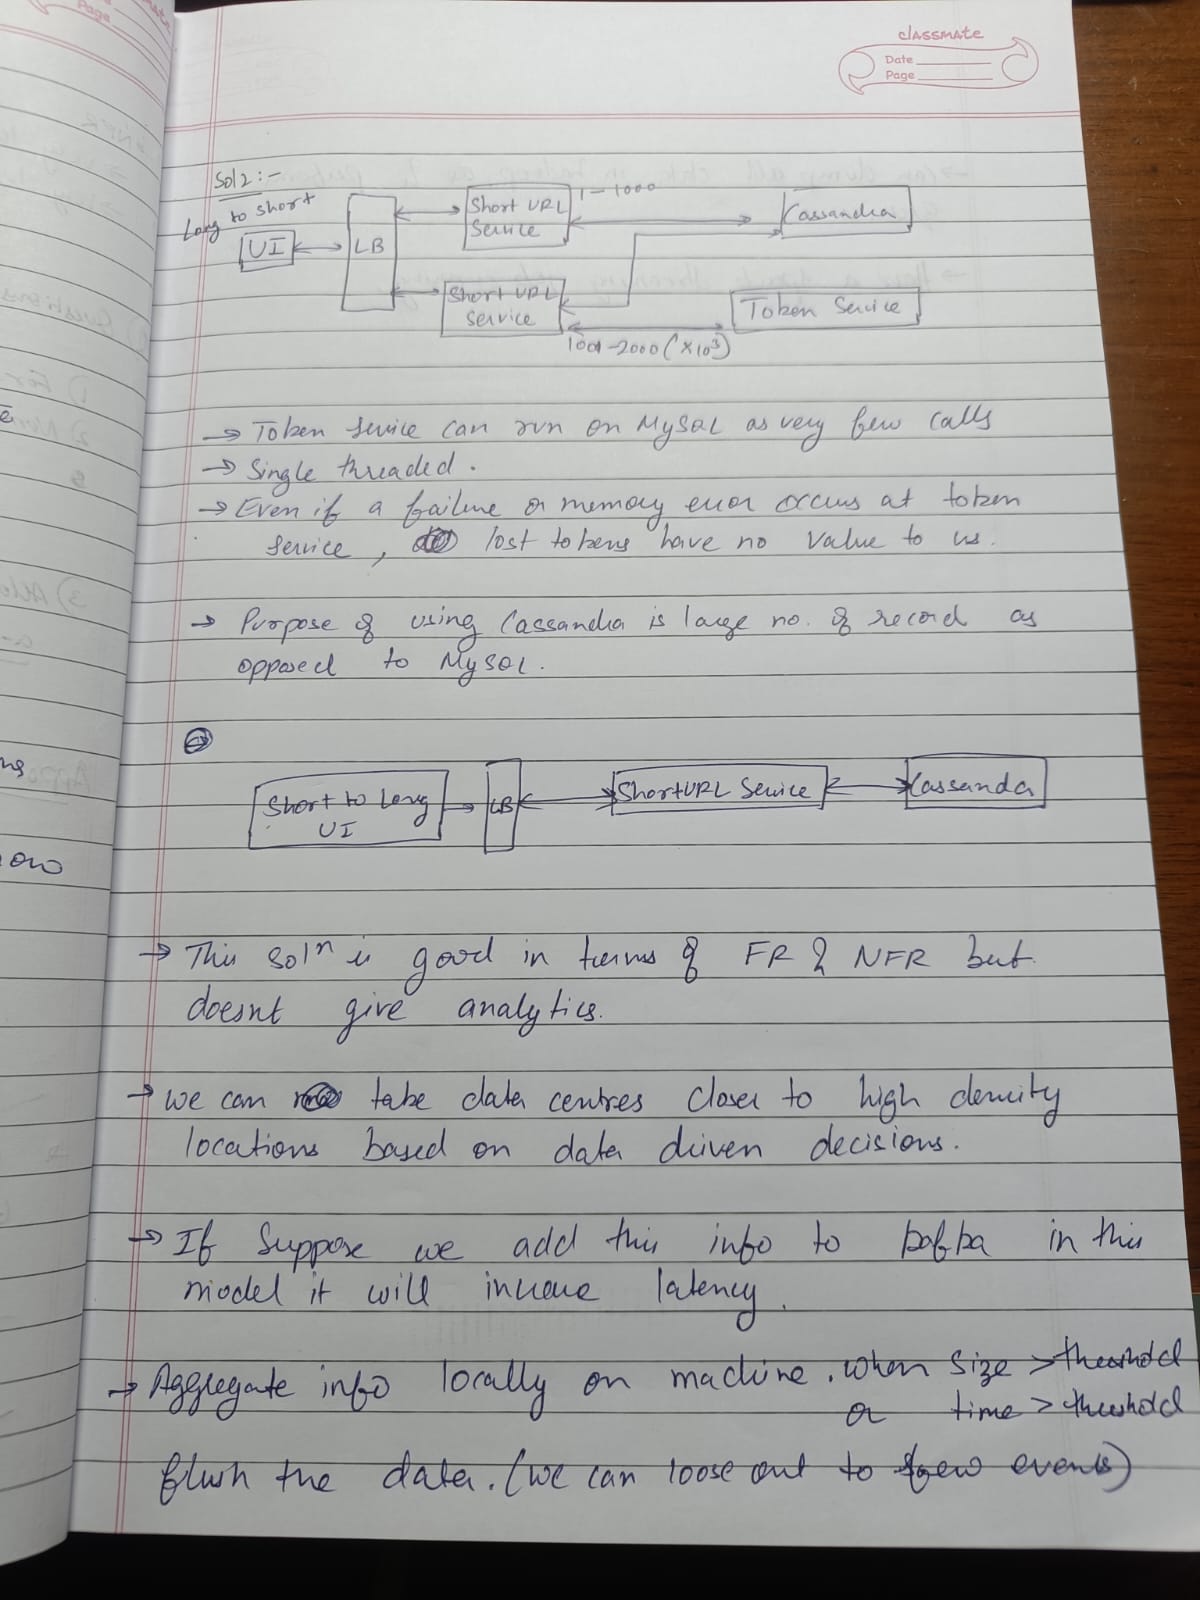 classmate
Date
Page
Page
Sol2:-
Long to short
UI
LB
Short URL
Service
1-1000
Cassandra
Short URL
Service
Token Service
1001-2000 (x10³)
→ Token service can run on MySQL as very few calls
→ Single threaded.
→ Even if a failure or memory error occurs at token
service, lost tokens have no value to us.
→ Purpose of using Cassandra is large no. of record as
opposed to MySQL.
Short to Long
UI
LB
ShortURL Service
Cassanda
→ This solⁿ is good in terms of FR & NFR but
doesnt give analytics.
→ we can take data centres closer to high density
locations based on data driven decisions.
→ If Suppose we add this info to kafka in this
model it will increase latency.
→ Aggregate info locally on machine. when size > threshold
or time > threshold
flush the data. (we can loose out to few events)